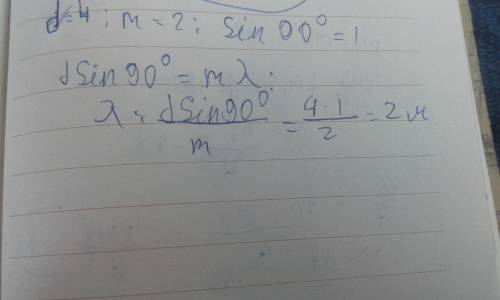 d=4; m=2; sin 90°=1
dSin90° = mλ;
λ = dSin90°/m = 4·1/2 = 2м